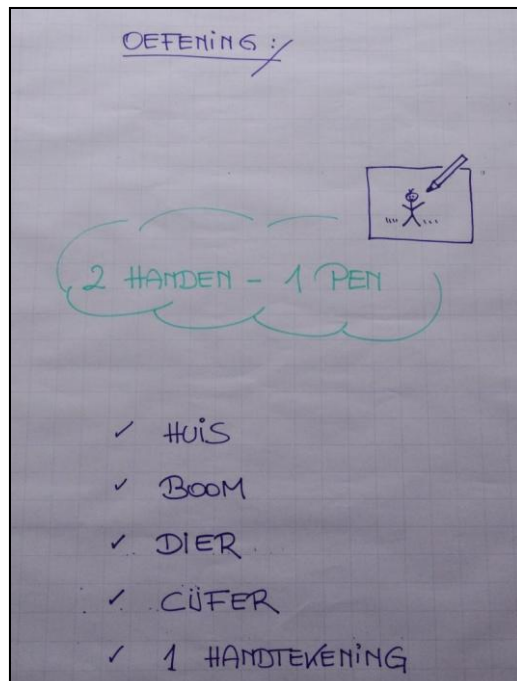 OEFENING :
2 HANDEN - 1 PEN
✓ HUIS
✓ BOOM
✓ DIER
✓ CIJFER
✓ 1 HANDTEKENING